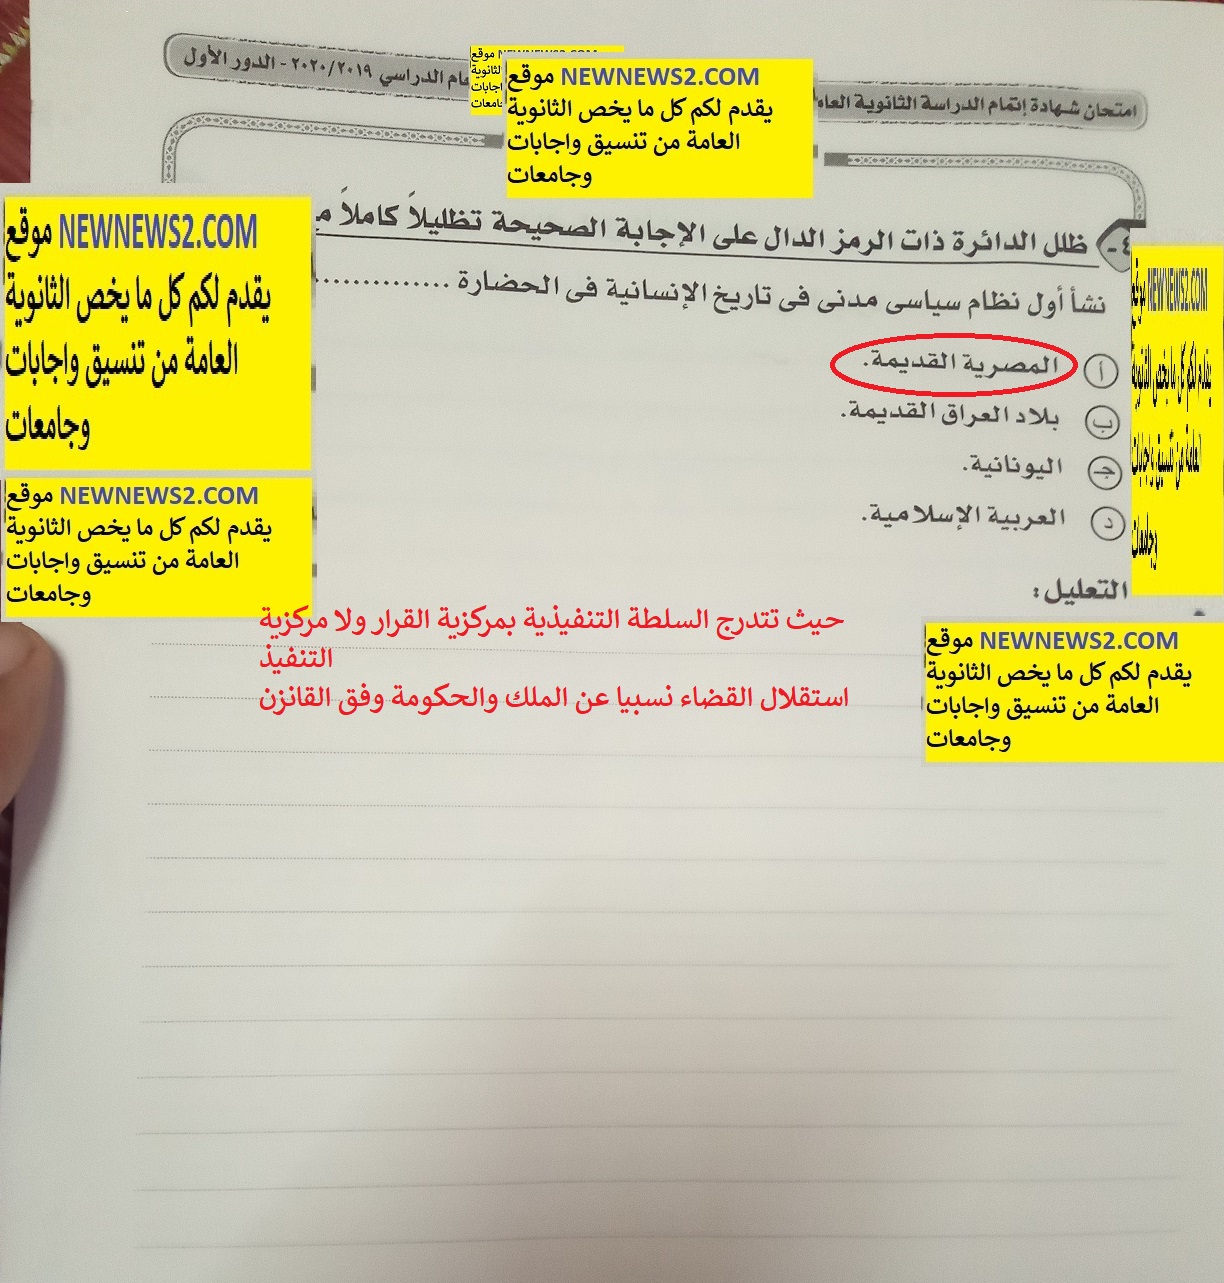 امتحان شهادة إتمام الدراسة الثانوية العامة
عام الدراسي ٢٠٢٠/٢٠١٩ - الدور الأول
موقع NEWNEWS2.COM
يقدم لكم كل ما يخص الثانوية
العامة من تنسيق واجابات
وجامعات
٤- ظلل الدائرة ذات الرمز الدال على الإجابة الصحيحة تظليلاً كاملاً
موقع NEWNEWS2.COM
يقدم لكم كل ما يخص الثانوية
العامة من تنسيق واجابات
وجامعات
موقع NEWNEWS2.COM
يقدم لكم كل ما يخص الثانوية
العامة من تنسيق واجابات
وجامعات
نشأ أول نظام سياسى مدنى فى تاريخ الإنسانية فى الحضارة ...............
أ المصرية القديمة.
ب بلاد العراق القديمة.
جـ اليونانية.
د العربية الإسلامية.
موقع NEWNEWS2.COM
يقدم لكم كل ما يخص الثانوية
العامة من تنسيق واجابات
وجامعات
التعليل:
حيث تتدرج السلطة التنفيذية بمركزية القرار ولا مركزية
التنفيذ
استقلال القضاء نسبيا عن الملك والحكومة وفق القانزن
موقع NEWNEWS2.COM
يقدم لكم كل ما يخص الثانوية
العامة من تنسيق واجابات
وجامعات